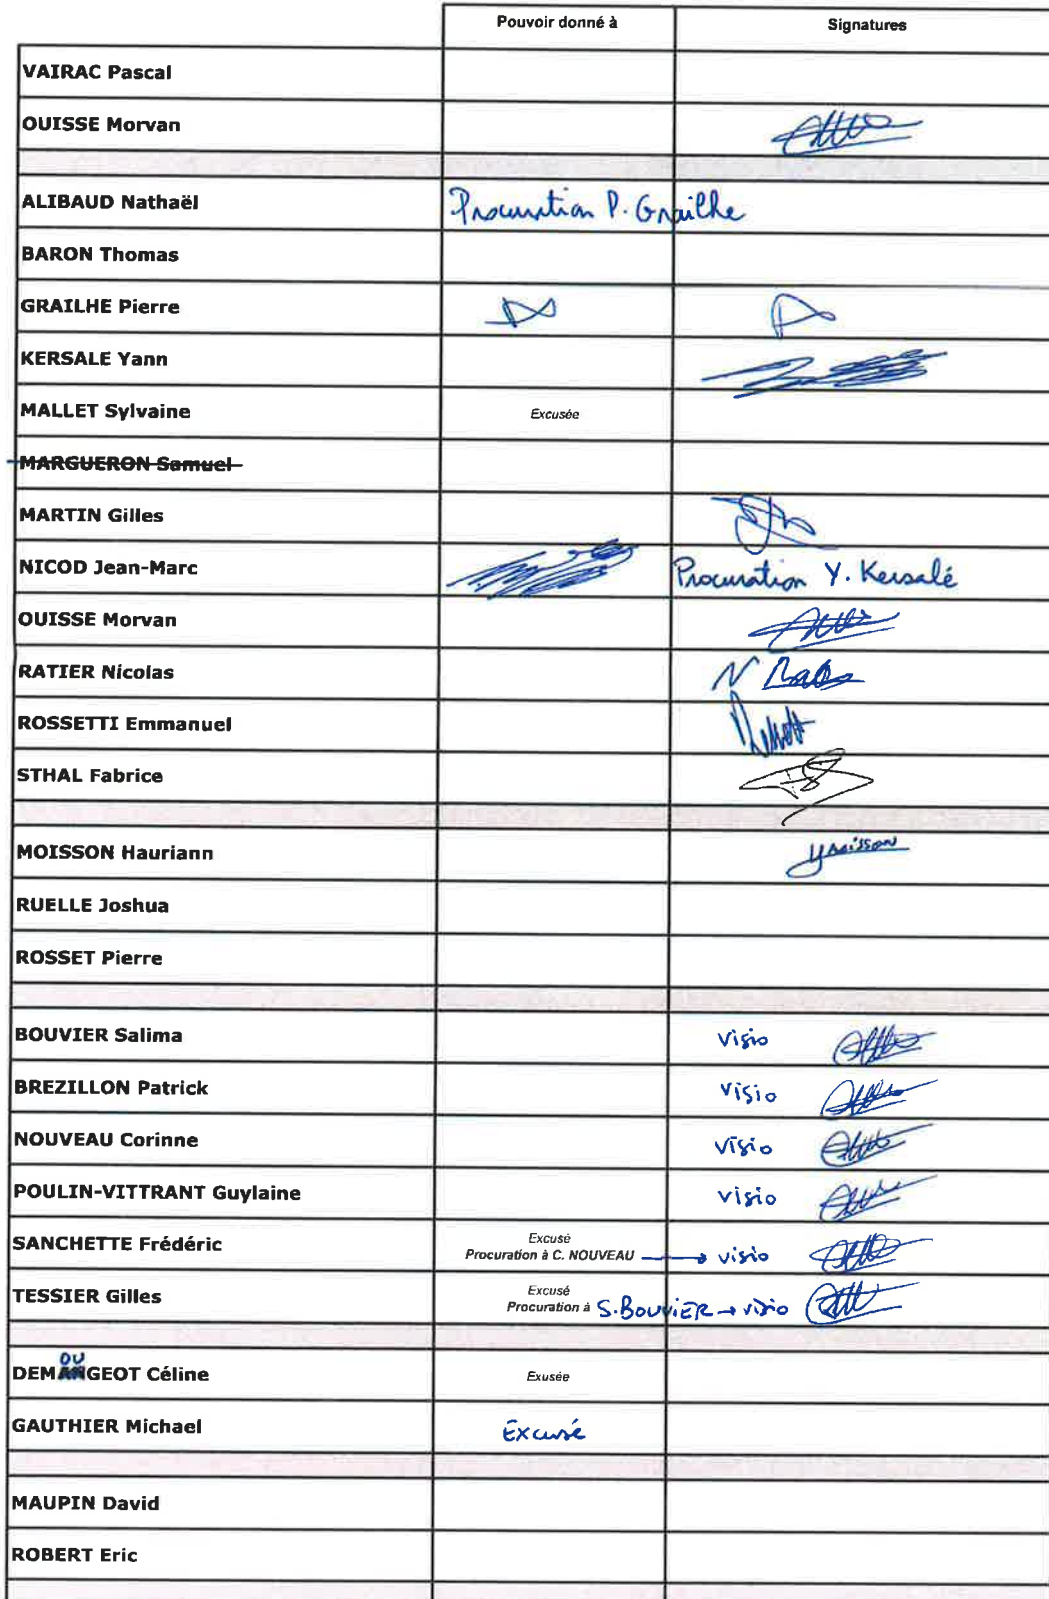 Pouvoir donné à Signatures
VAIRAC Pascal
OUISSE Morvan
ALIBAUD Nathaël Procuration P. Grailhe
BARON Thomas
GRAILHE Pierre
KERSALE Yann
MALLET Sylvaine Excusée
MARGUERON Samuel
MARTIN Gilles
NICOD Jean-Marc Procuration Y. Kersalé
OUISSE Morvan
RATIER Nicolas
ROSSETTI Emmanuel
STHAL Fabrice
MOISSON Hauriann
RUELLE Joshua
ROSSET Pierre
BOUVIER Salima visio
BREZILLON Patrick visio
NOUVEAU Corinne visio
POULIN-VITTRANT Guylaine visio
Excusé
SANCHETTE Frédéric Procuration à C. NOUVEAU → visio
Excusé
TESSIER Gilles Procuration à S. BOUVIER → visio
OU
DEMANGEOT Céline Exusée
GAUTHIER Michael Excusé
MAUPIN David
ROBERT Eric